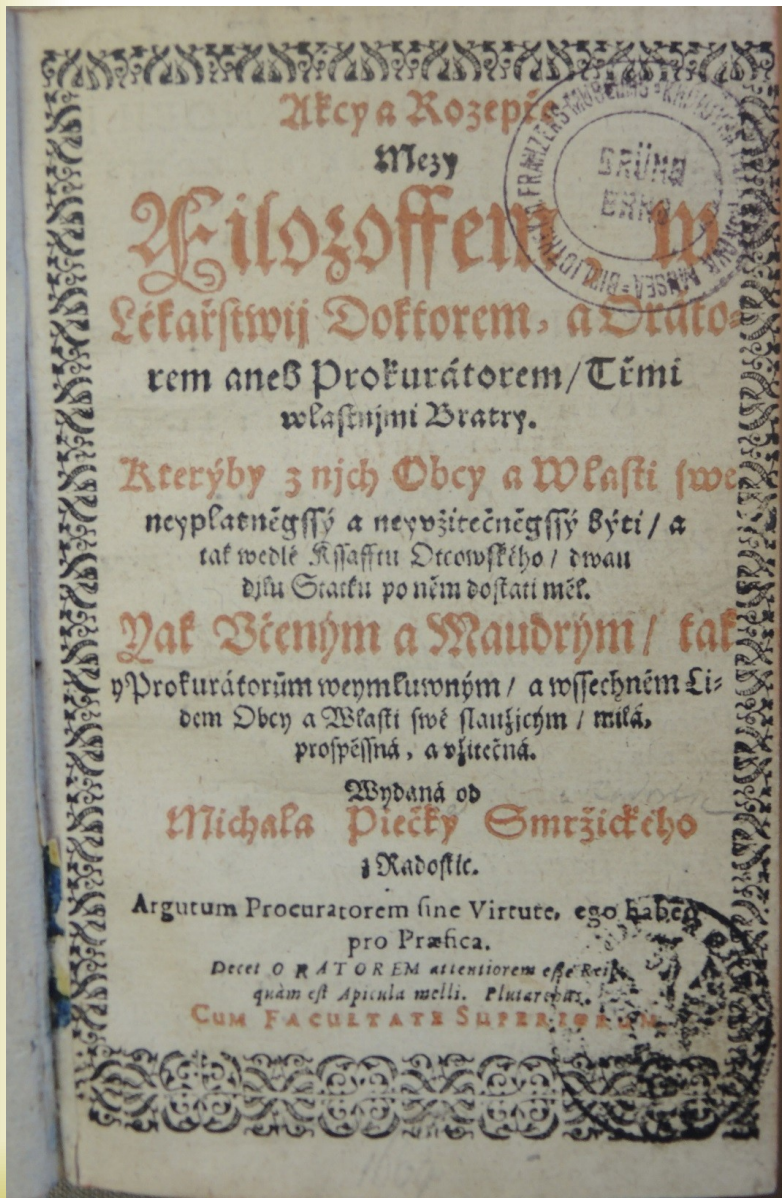 Akcy a Rozepře
Mezy
Filozoffem, w
Lékařstwij Doktorem, a Oráto-
rem aneb Prokurátorem / Třmi
wlastnjmi Bratry.
Kterýby z njch Obcy a Wlasti swé
neyplatněgssý a neyvžitečněgssý býti / a
tak wedlé Kssafftu Otcowského / dwau
djlu Statku po něm dostati měl.
Yak Včeným a Maudrým / tak
y Prokurátorům weymluwným / a wssechněm Li-
dem Obcy a Wlasti swé slaužicým / milá,
prospěssná, a vžitečná.
Wydaná od
Michala Piečky Smržického
z Radostic.
Argutum Procuratorem sine Virtute, ego habeo
pro Præfica.
Decet ORATOREM attentiorem esse Reip.
quàm est Apicula melli. Plutarchus.
CUM FACULTATE SUPERIORUM
GRÜNO
BRNO